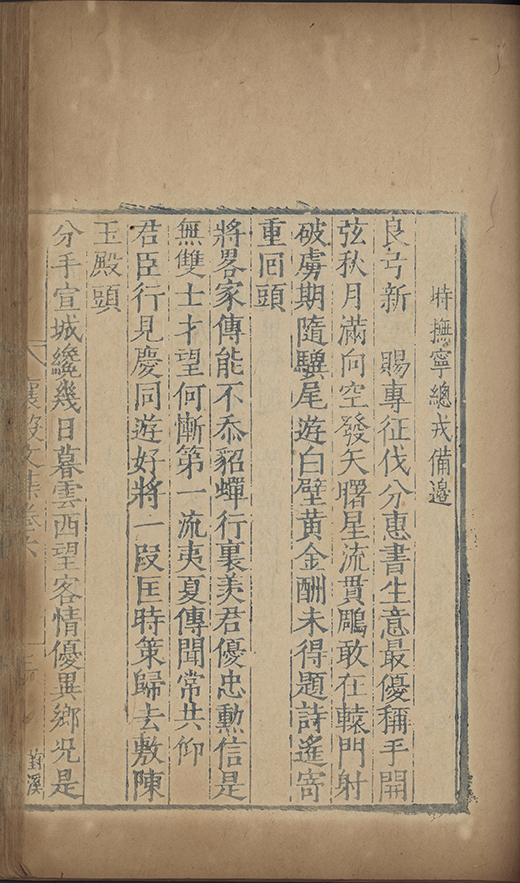 時撫寧總戎備邊
良弓新　賜專征伐分惠書生意最優稱手開
弦秋月滿向空發矢曙星流貫鵰敢在轅門射
破虜期隨驥尾遊白壁黃金酬未得題詩遙寄
重回頭
將畧家傳能不忝貂蟬行裏美君優忠勳信是
無雙士才望何慚第一流夷夏傳聞常共仰
君臣行見慶同遊好將一段匡時策歸去敷陳
玉殿頭
分手宣城纔幾日暮雲西望客情優異鄉况是
襄毅文集卷
葑溪